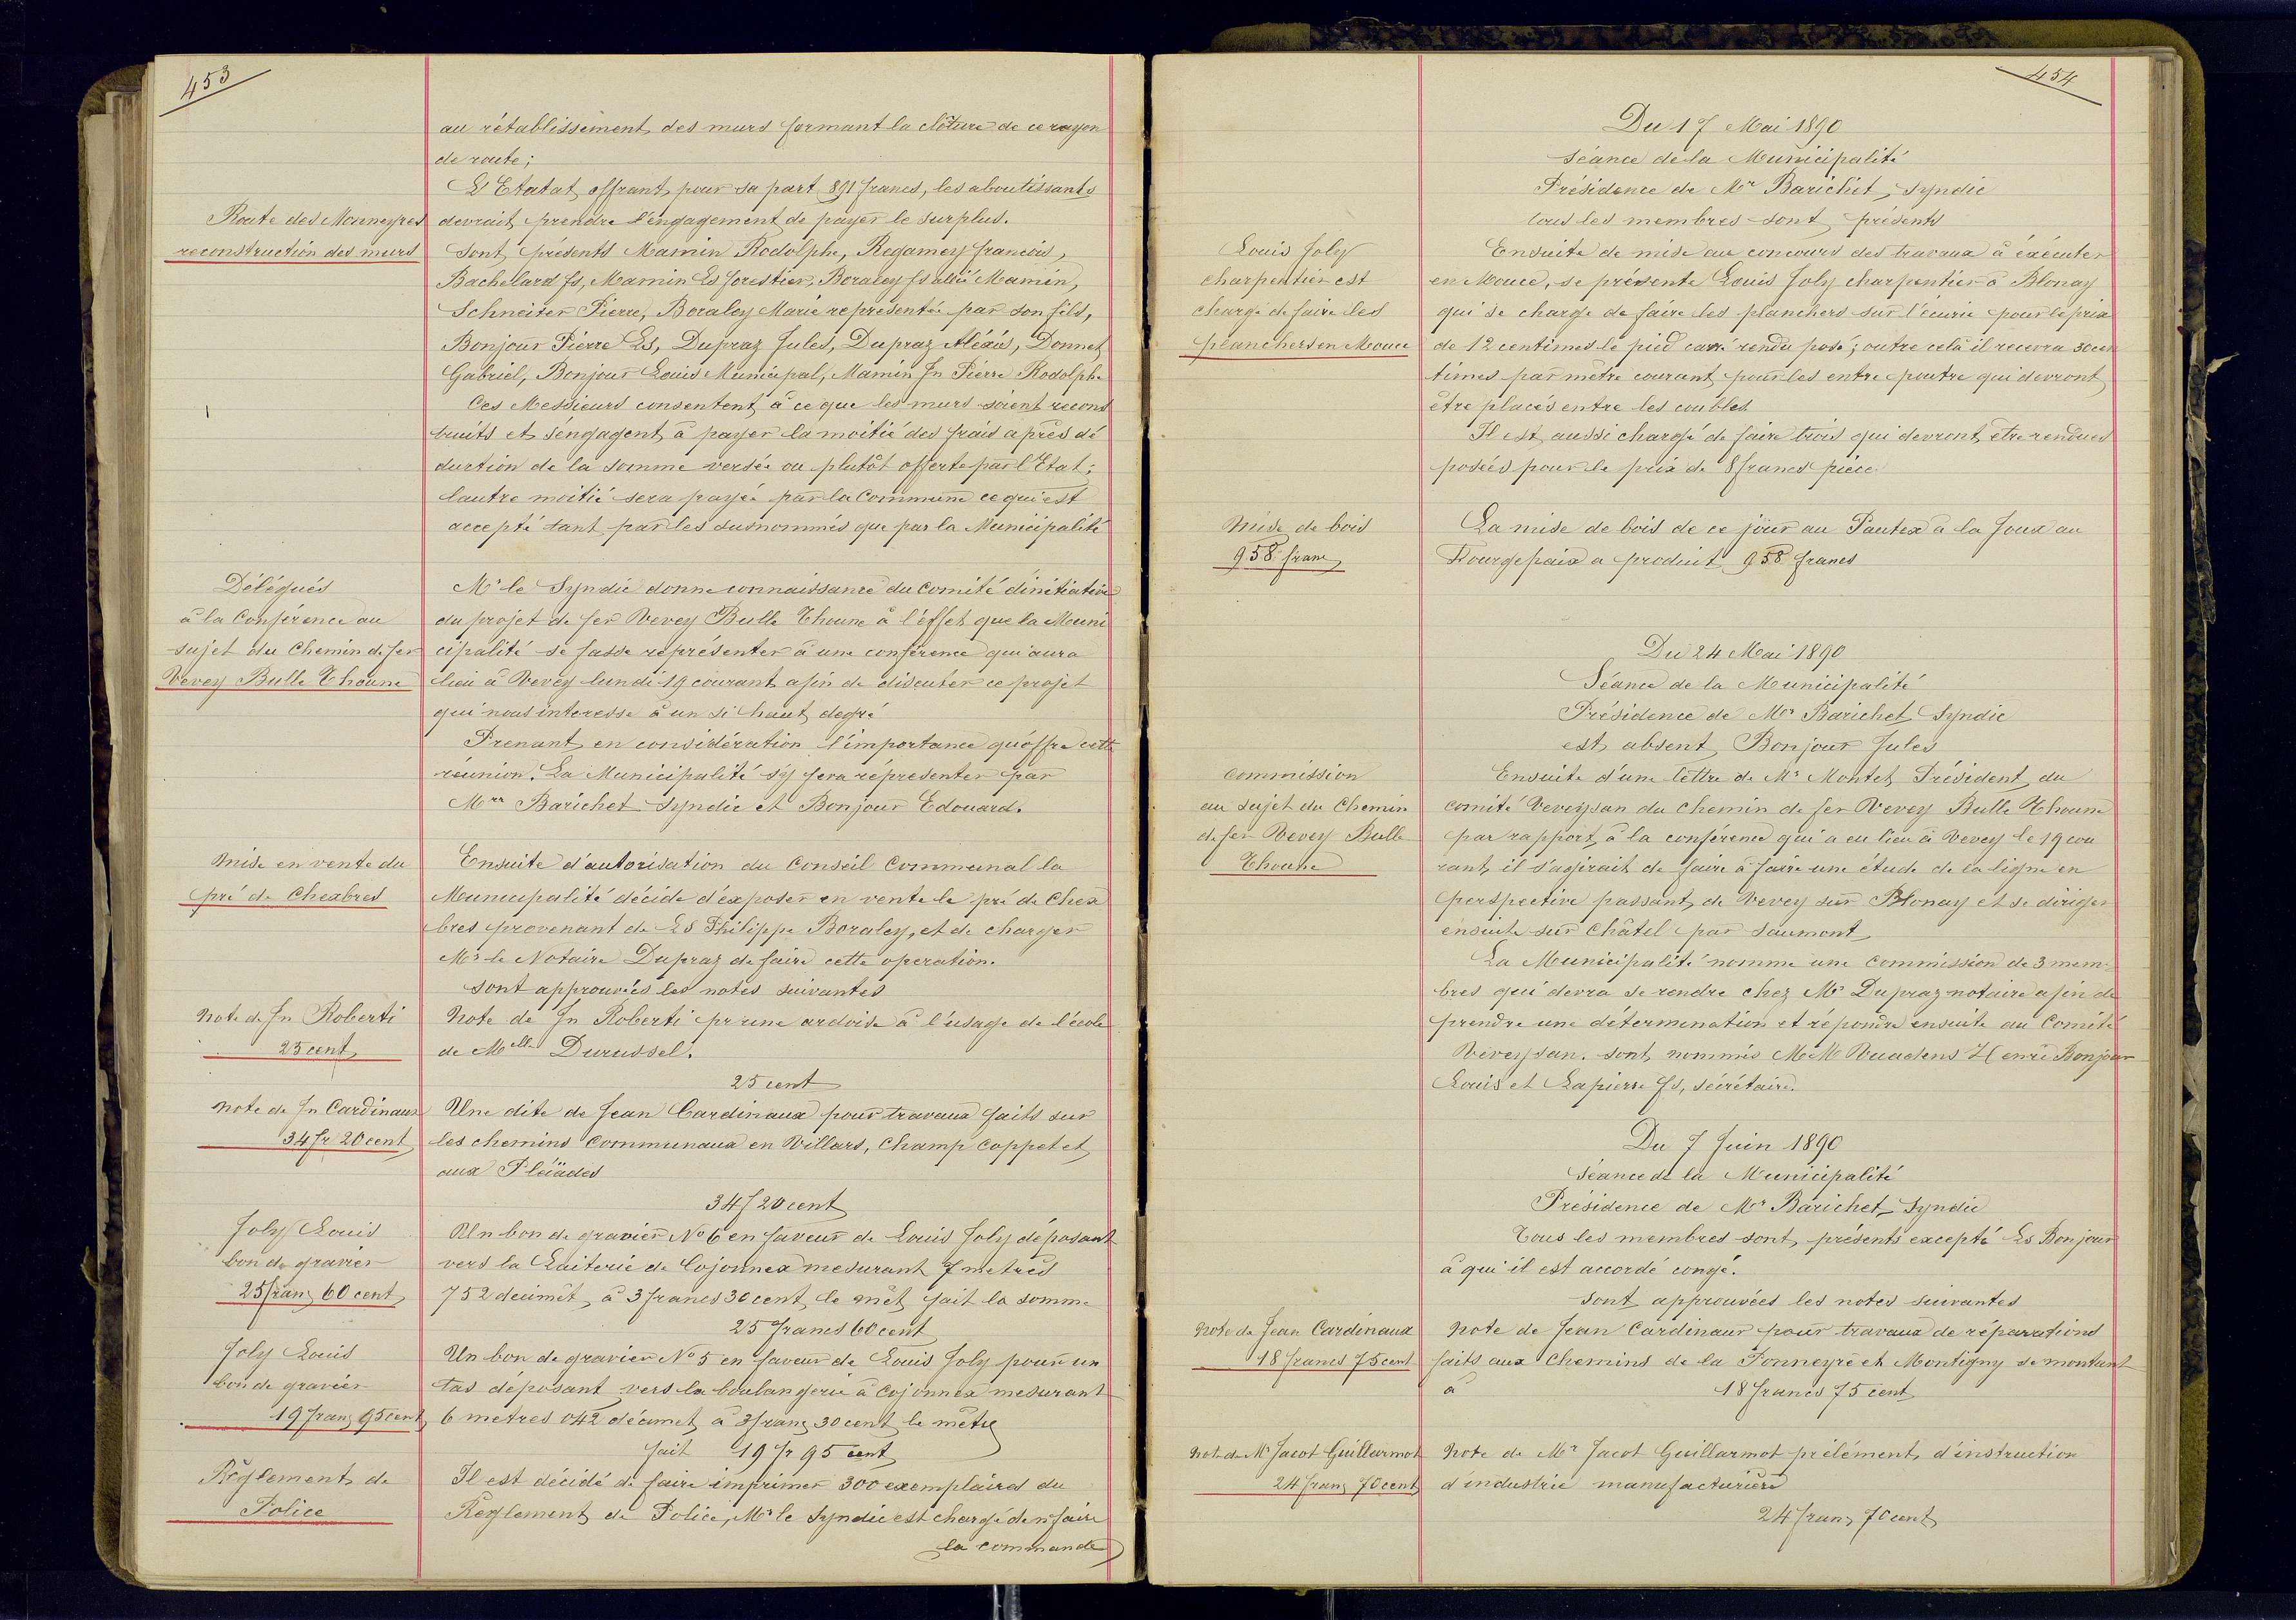 453
au rétablissement des murs formant la clôture de ce rayon
de route;
L'Etatat offrant pour sa part 891 francs, les aboutissants
Route des Monneyres
reconstruction des murs
devrait prendre l'engagement de payer le surplus.
Sont présents Mamin Rodolphe, Regamey francois,
Bachelard fs, Mamin Ls forestier, Boraley fs allié Mamin,
Schneiter Pierre, Boraley Marie représentée par son fils,
Bonjour Pierre Ls, Dupraz Jules, Dupraz Aléxis, Donnet
Gabriel, Bonjour Louis Municipal, Mamin Jn Pierre Rodolphe
Ces Messieurs consentent à ce que les murs soient recons
truits et s'engagent à payer la moitié des frais après dé
duction de la somme versée ou plutôt offerte par l'Etat;
lautre moitié sera payée par la Commune ce qui est
accepté tant par les susnommés que par la Municipalité
Délégués
à la Conférence au
sujet du Chemin de fer
Vevey Bulle Thoune
Mr le Syndic donne connaissance du Comité d'initiative
du projet de fer Vevey Bulle Thoune à l'éffet que la Muni
cipalité se fasse représenter à une conférence qui aura
lieu à Vevey lundi 19 courant afin de discuter ce projet
qui nous interesse à un si haut degré
Prenant en considération l'importance qu'offre cette
réunion. La Municipalité s'y fera répresenter par
Mrr Barichet Syndic et Bonjour Edouard.
Mise en vente du
pré de Chexbres
Ensuite d'autorisation du Conseil Communal la
Municipalité décide d'éxposer en vente le pré de Chex
bres provenant de Ls Philippe Boraley, et de charger
Mr le Notaire Dupraz de faire cette operation.
sont approuvées les notes suivantes
Note de Jn Roberti
25 cent
Note de Jn Roberti pr une ardoise à l'usage de l'école
de Melle Durussel.
25 cent
Note de Jn Cardinaux
34 fr 20 cent
Une dite de Jean Cardinaux pour travaux faits sur
les chemins Communaux en Villars, Champ Coppet et
aux Pléïades
34 f 20 cent
Joly Louis
bon de gravier
25 franc 60 cent
Un bon de gravier No 6 en faveur de Louis Joly déposant
vers la Laiterie de Cojonnex mesurant 7 metres
752 decimèt, à 3 francs 30 cent le mèt fait la somme
25 francs 60 cent
Joly Louis
bon de gravier
19 franc 95 cent
Un bon de gravier No 5 en faveur de Louis Joly pour un
tas déposant vers la boulangerie à Cojonnex mesurant
6 metres 042 décimet à 3 franc 30 cent le mètre
fait 19 fr 95 cent
Règlement de
Police
Il est décidé de faire imprimer 300 exemplaires du
Règlement de Police, Mr le Syndic est chargé d'en faire
la commande
454
Du 17 Mai 1890
Séance de la Municipalité
Présidence de Mr Barichet, Syndic
tous les membres sont présents
Louis Joly
charpentier est
chargé de faire les
planchers en Mouce
Ensuite de mise au concours des travaux à éxécuter
en Mouce, se présente Louis Joly charpentier à Blonay
qui se charge de faire les planchers sur l'écurie pour le prix
de 12 centimes le pied carré rendu posé; outre celà il recevra 30 cen
times par mètre courant pour les entre poutre qui devront
être placés entre les coubles
Il est aussi chargé de faire trois qui devront etre rendues
posées pour le prix de 8 francs pièce
Mise de bois
958 franc
La mise de bois de ce jour au Pautex à la Joux au
Fourgepaix a produit 958 francs
Du 24 Mai 1890
Séance de la Municipalité
Présidence de Mr Barichet Syndic
est absent Bonjour Jules
Commission
au sujet du Chemin
de fer Vevey Bulle
Thoune
Ensuite d'une lettre de Mr Montet Président du
comité Veveysan du chemin de fer Vevey Bulle Thoune
par rapport à la conférence qui a eu lieu à Vevey le 19 cou
rant, il s'agirait de faire à faire une étude de la ligne en
perspective passant de Vevey sur Blonay et se diriger
ensuite sur Châtel par Saumont
La Municipalité nomme une Commission de 3 mem-
bres qui devra se rendre chez Mr Dupraz notaire afin de
prendre une détermination et répondre ensuite au Comité
Veveysan. sont nommés M M Vuadens Henri Bonjour
Louis et Lapierre fs, sécrétaire.
Du 7 Juin 1890
Séance de la Municipalité
Présidence de Mr Barichet Syndic
Tous les membres sont présents excepté Ls Bonjour
à qui il est accordé congé.
sont approuvées les notes suivantes
Note de Jean Cardinaux
18 francs 75 cent
Note de Jean Cardinaux pour travaux de réparations
faits aux chemins de la Fonneyre et Montigny se montant
à 18 francs 75 cent
Note de Mr Jacot Guillarmot
24 franc 70 cent
Note de Mr Jacot Guillarmot pr élément d'instruction
d'industrie manufacturière
24 franc 70 cent